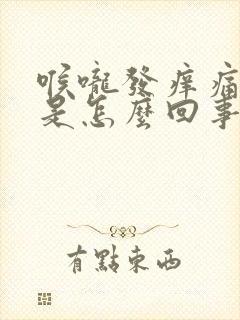 喉嚨發痒痛
是怎麼回事
有點東西